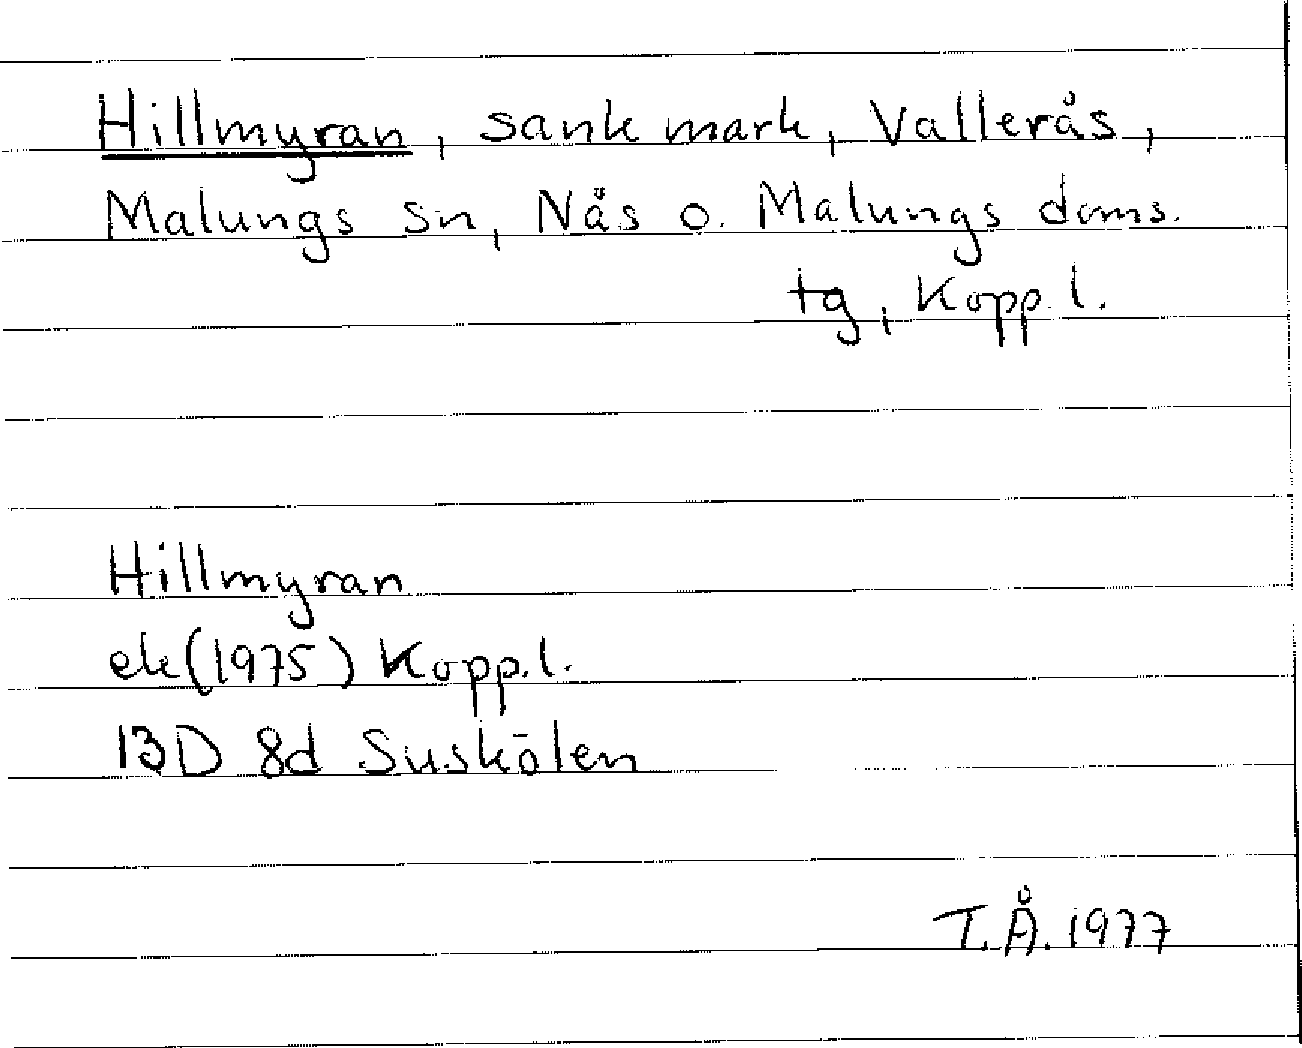 Hillmyran, sank mark, Vallerås,
Malungs sn, Nås o. Malungs doms.
tg, Kopp. l.
Hillmyran
ek (1975) Kopp. l.
13D 8d Suskölen
T. Å. 1977